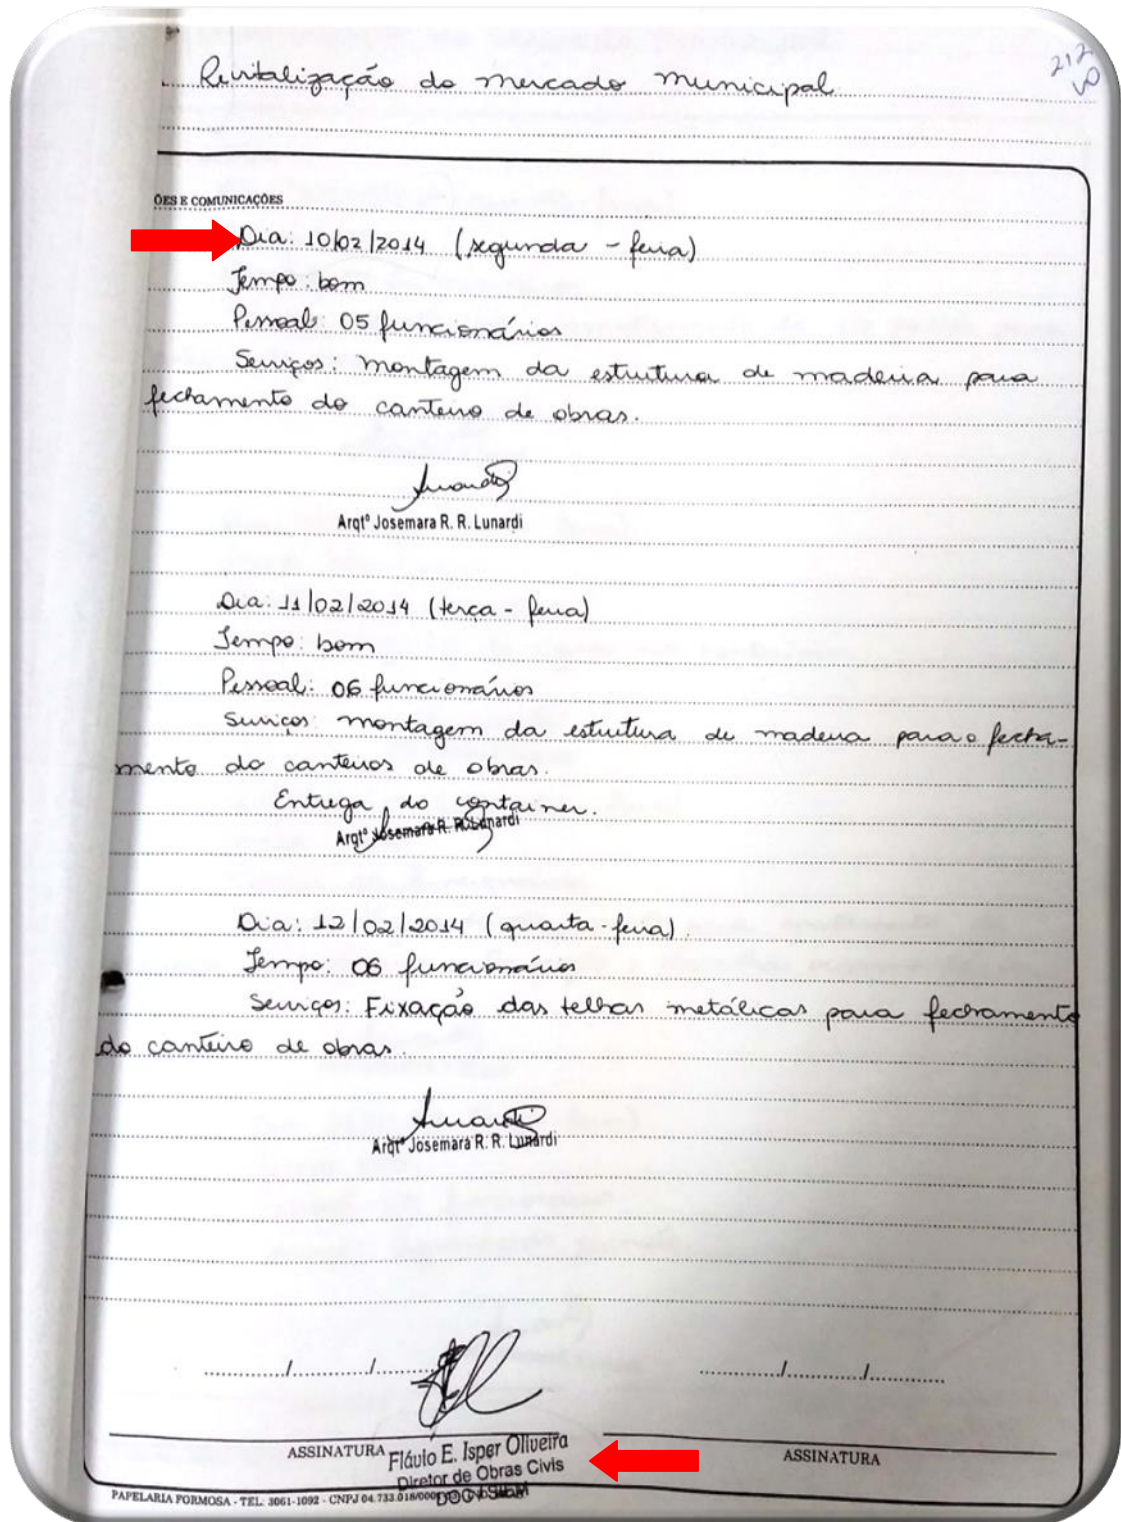 Revitalização do mercado municipal
212
ÕES E COMUNICAÇÕES
Dia: 10/02/2014 (segunda - feira)
Tempo: bom
Pessoal: 05 funcionários
Serviços: montagem da estrutura de madeira para
fechamento do canteiro de obras.
Arqtº Josemara R. R. Lunardi
Dia: 11/02/2014 (terça - feira)
Tempo: bom
Pessoal: 06 funcionários
Serviços: montagem da estrutura de madeira para o fecha-
mento do canteiros de obras.
Entrega do container.
Arqtº Josemara R. R. Lunardi
Dia: 12/02/2014 (quarta-feira).
Tempo: 06 funcionários
Serviços: Fixação das telhas metálicas para fechamento
do canteiro de obras.
Arqtº Josemara R. R. Lunardi
/ /
/ /
ASSINATURA
Flávio E. Isper Oliveira
Diretor de Obras Civis
ASSINATURA
PAPELARIA FORMOSA - TEL: 3061-1092 - CNPJ 04.733.018/000